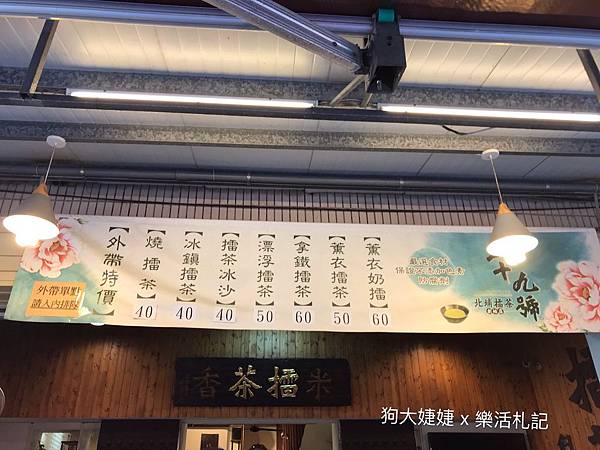 外帶單點
請入內排隊
【外帶特價】
【燒擂茶】
40
【冰鎮擂茶】
40
【擂茶冰沙】
40
【漂浮擂茶】
50
【拿鐵擂茶】
60
【薰衣擂茶】
50
【薰衣奶擂】
60
嚴選食材
保證不添加色素
防腐劑
十九號
北埔擂茶
香茶擂米
狗大婕婕 x 樂活札記